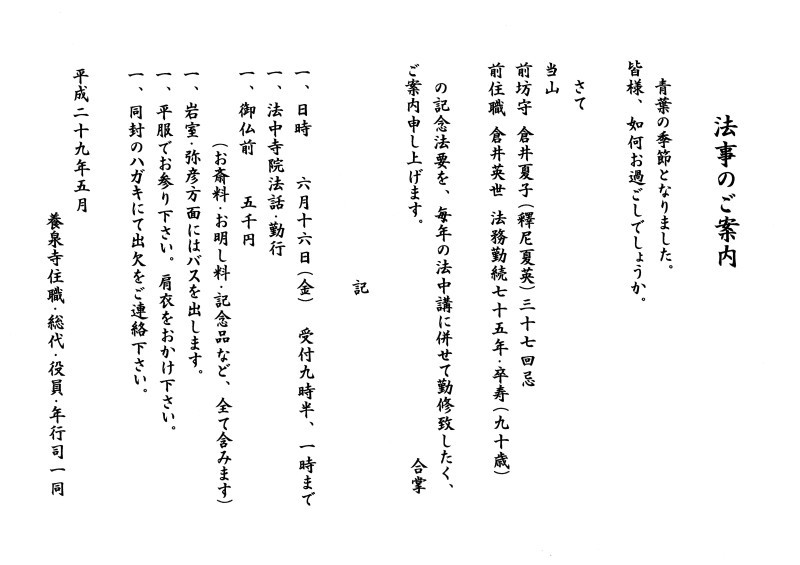 法事のご案内
青葉の季節となりました。
皆様、如何お過ごしでしょうか。
さて
当山
前坊守 倉井夏子(釋尼夏英)三十七回忌
前住職 倉井英世 法務勤続七十五年・卒寿(九十歳)
の記念法要を、毎年の法中講に併せて勤修致したく、
ご案内申し上げます。
合掌
記
一、日時 六月十六日(金) 受付九時半、一時まで
一、法中寺院法話・勤行
一、御仏前 五千円
(お斎料・お明し料・記念品など、全て含みます)
一、岩室・弥彦方面にはバスを出します。
一、平服でお参り下さい。肩衣をおかけ下さい。
一、同封のハガキにて出欠をご連絡下さい。
平成二十九年五月
養泉寺住職・総代・役員・年行司一同